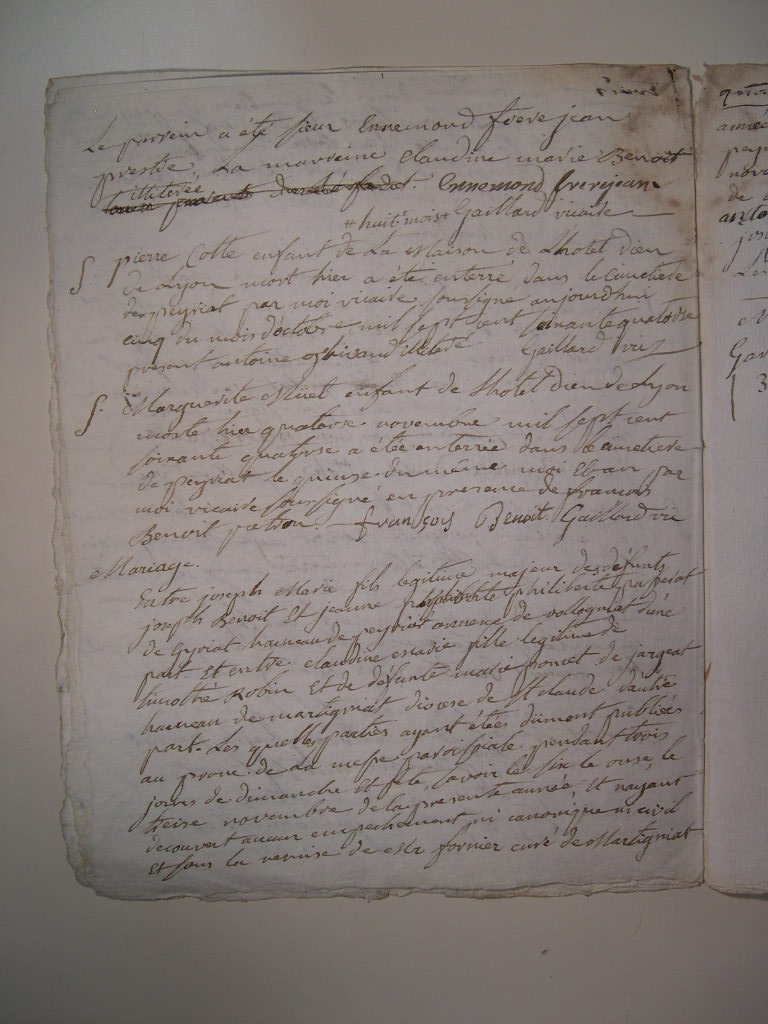 trois
Le parrein a été sieur Ennemond frere jean
prestre, La marreine Claudine marie Benoit
illiterée Ennemond frerejean
# huit mois # Gaillard vicaire
S pierre Colle enfant de La Maison de Lhotel dieu
de Lyon mort hier a été enterré dans le cimetiere
de peyriat par moi vicaire soussigné aujourdhui
cinq du mois d'octobre mil sept cent soixante quatorse
present antoine illiteré Gaillard vic
S. Marguerite Miret enfant de Lhotel dieu de Lyon
morte hier quatorse novembre mil sept cent
soixante quatorse a étée enterrée dans le cimetiere
de peyriat le quinse du meme moi Et an par
moi vicaire soussigné en presence de francois
Benoit patron. françois Benoit Gaillard vic
Mariage.
Entre joseph Marie fils legitime majeur des défunts
joseph Benoit Et jeanne philiberte passerat
de Gyriat hameau de peyriat annexe de vollogniat d'une
part. Et entre Claudine Marie fille legitime de
timothé Robin Et de defunte marie poncet de jargeat
hameau de martigniat diocese de St claude d'autre
part. Les quelles parties ayant étées düment publiées
au prone de La messe paroissiale pendant trois
jours de dimanche Et fête, savoir le six le onse, le
treise novembre de la presente année, Et nayant
decouvert aucun empechement ni canonique ni civil
Et sous la remise de Mr fornier curé de Martigniat
année
de